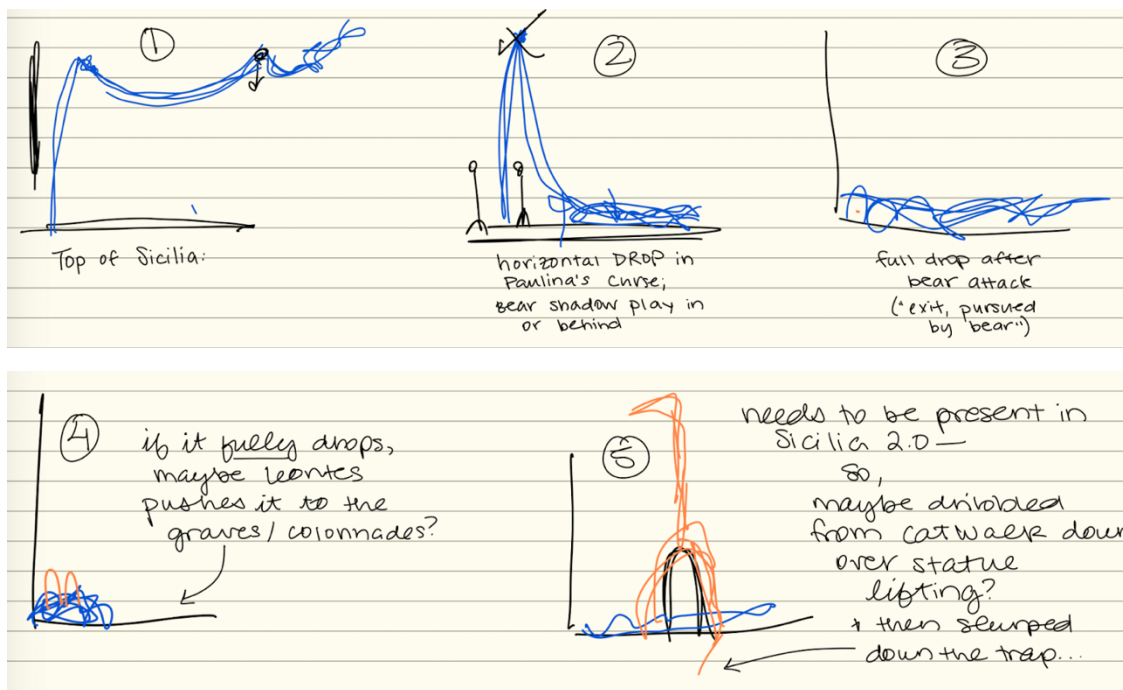 1
Top of Sicilia:
2
horizontal DROP in
Paulina's curse;
Bear shadow play in
or behind
3
full drop after
bear attack
("exit, pursued
by bear")
4
if it fully drops,
maybe Leontes
pushes it to the
graves/colonnades?
5
needs to be present in
Sicilia 2.0—
so,
maybe dribbled
from catwalk down
over statue
lifting?
+ then slurped
down the trap...